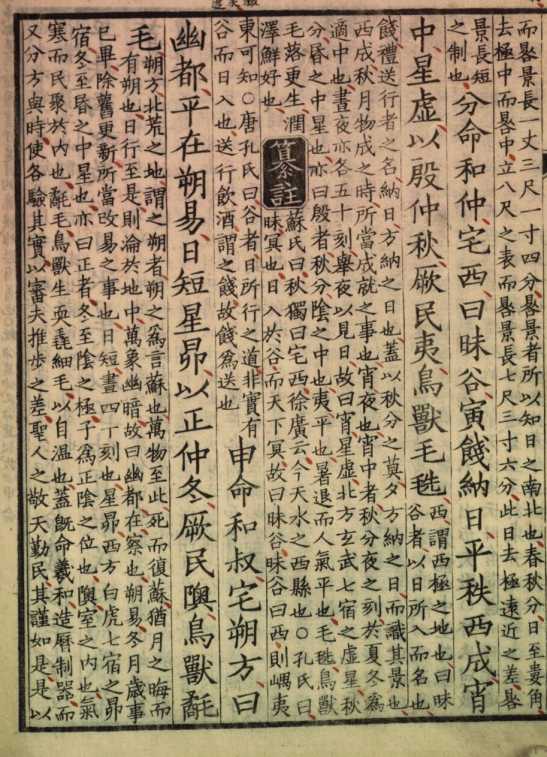 而晷景長一丈三尺一寸四分晷景者所以知日之南北也春秋分日至婁角
去極中而晷中立八尺之表而晷景長七尺三寸六分此日去極遠近之差晷
景長短
之制也
分命和仲宅西曰昧谷寅餞納日平秩西成宵
中星虛以殷仲秋厥民夷鳥獸毛毨
西謂西極之地也曰昧
谷者以日所入而名也
餞禮送行者之名納日方納之日也蓋以秋分之莫夕方納之日而識其景也
西成秋月物成之時所當成就之事也宵夜也宵中者秋分夜之刻於夏冬為
適中也晝夜亦各五十刻舉夜以見日故曰宵星虛北方玄武七宿之虛星秋
分昏之中星也亦曰殷者秋分陰之中也夷平也暑退而人氣平也毛毨鳥獸
毛落更生潤
澤鮮好也
纂註
蘇氏曰秋獨曰宅西徐廣云今天水之西縣也○孔氏曰
昧冥也日入於谷而天下冥故曰昧谷昧谷曰西則嵎夷
東可知○唐孔氏曰谷者日所行之道非實有
谷而日入也送行飲酒謂之餞故餞為送也
申命和叔宅朔方曰
幽都平在朔易日短星昴以正仲冬厥民隩鳥獸氄
毛
朔方北荒之地謂之朔者朔之為言蘇也萬物至此死而復蘇猶月之晦而
有朔也日行至是則淪於地中萬象幽暗故曰幽都在察也朔易冬月歲事
已畢除舊更新所當改易之事也日短晝四丁刻也星昴西方白虎七宿之昴
宿冬至昏之中星也亦曰正者冬至陰之極子為正陰之位也隩室之內也氣
寒而民聚於內也氄毛鳥獸生耎毳細毛以自溫也蓋既命羲和造曆制器而
又分方與時使各驗其實以審夫推步之差聖人之敬天勤民其謹如是是以